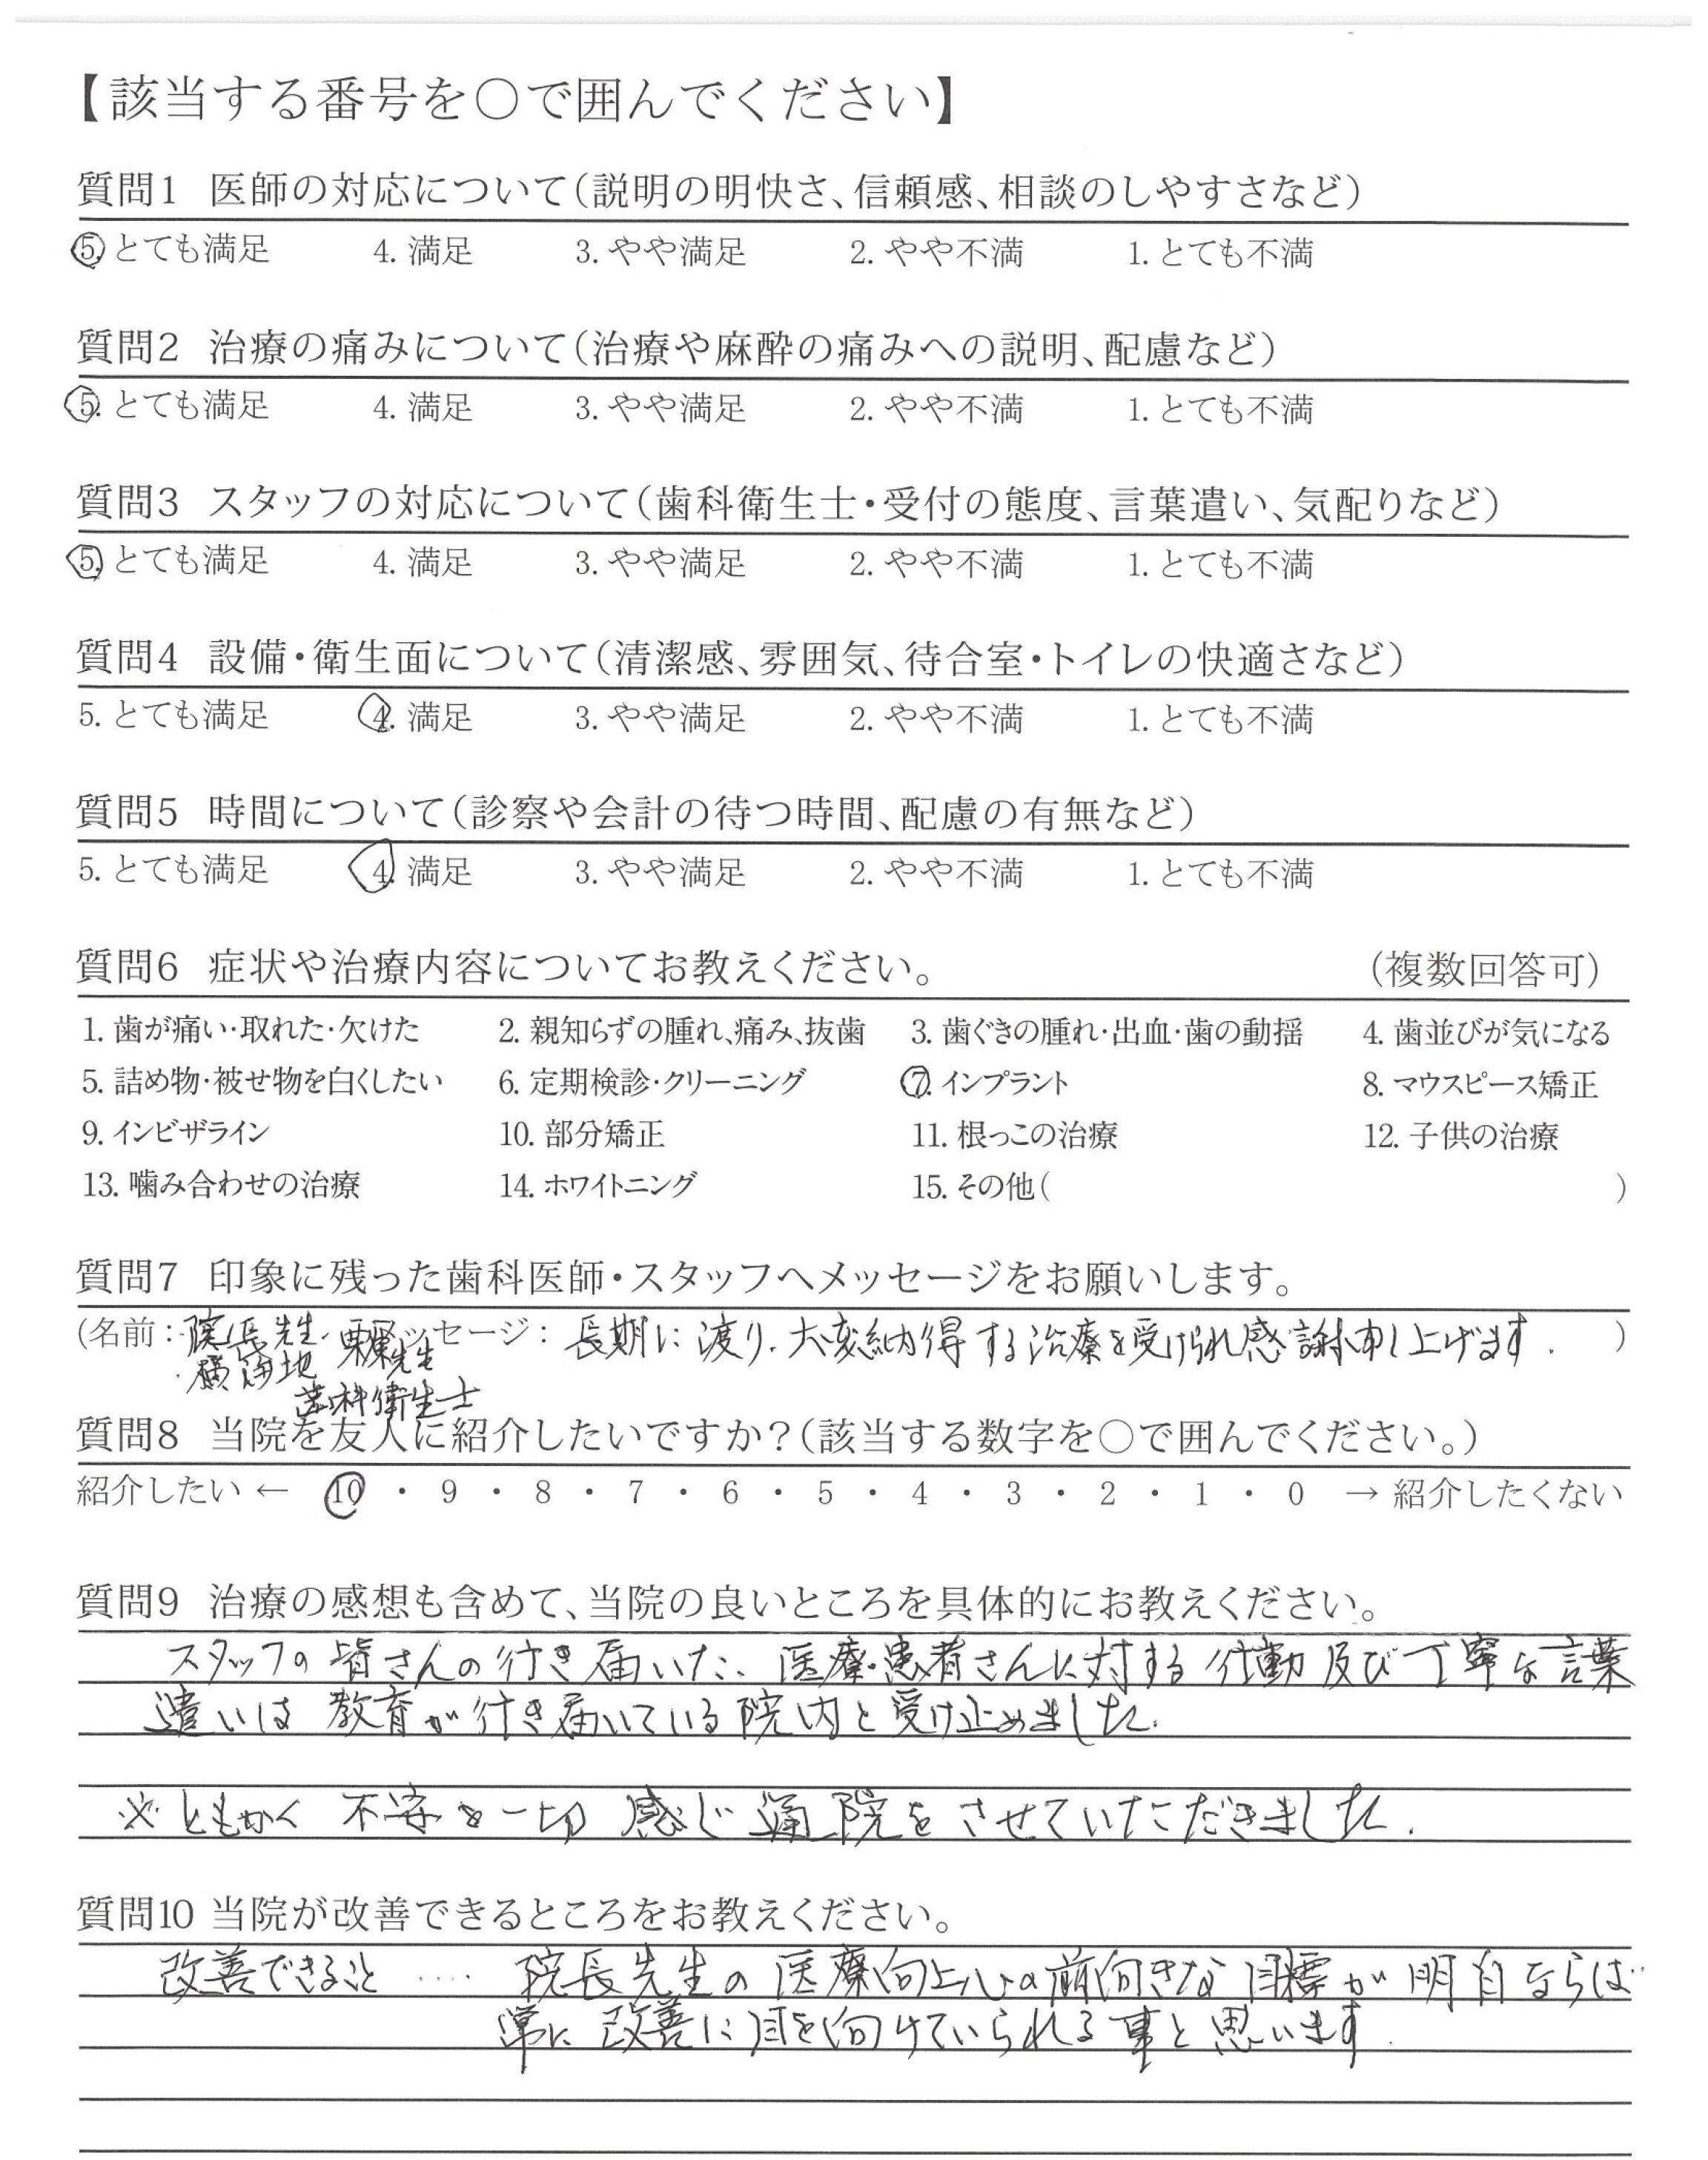 【該当する番号を○で囲んでください】
質問1 医師の対応について(説明の明快さ、信頼感、相談のしやすさなど)
5. とても満足 4. 満足 3. やや満足 2. やや不満 1. とても不満
質問2 治療の痛みについて(治療や麻酔の痛みへの説明、配慮など)
5. とても満足 4. 満足 3. やや満足 2. やや不満 1. とても不満
質問3 スタッフの対応について(歯科衛生士・受付の態度、言葉遣い、気配りなど)
5. とても満足 4. 満足 3. やや満足 2. やや不満 1. とても不満
質問4 設備・衛生面について(清潔感、雰囲気、待合室・トイレの快適さなど)
5. とても満足 4. 満足 3. やや満足 2. やや不満 1. とても不満
質問5 時間について(診察や会計の待つ時間、配慮の有無など)
5. とても満足 4. 満足 3. やや満足 2. やや不満 1. とても不満
質問6 症状や治療内容についてお教えください。 (複数回答可)
1. 歯が痛い・取れた・欠けた 2. 親知らずの腫れ、痛み、抜歯 3. 歯ぐきの腫れ・出血・歯の動揺 4. 歯並びが気になる
5. 詰め物・被せ物を白くしたい 6. 定期検診・クリーニング 7. インプラント 8. マウスピース矯正
9. インビザライン 10. 部分矯正 11. 根っこの治療 12. 子供の治療
13. 噛み合わせの治療 14. ホワイトニング 15. その他( )
質問7 印象に残った歯科医師・スタッフへメッセージをお願いします。
(名前: 院長先生 メッセージ: 長期に渡り、大変納得する治療を受けられ感謝申し上げます. )
先生
歯科衛生士
質問8 当院を友人に紹介したいですか?(該当する数字を○で囲んでください。)
紹介したい ← 10 ・ 9 ・ 8 ・ 7 ・ 6 ・ 5 ・ 4 ・ 3 ・ 2 ・ 1 ・ 0 → 紹介したくない
質問9 治療の感想も含めて、当院の良いところを具体的にお教えください。
スタッフの皆さんの行き届いた、医療・患者さんに対する行動及び丁寧な言葉
遣いは教育が行き届いている院内と受け止めました.
※ともかく不安を一切感じ通院をさせていただきました.
質問10 当院が改善できるところをお教えください。
改善できること ‥‥ 院長先生の医療向上心の前向きな目標が明白ならば
常に改善に目を向けていられる事と思います.